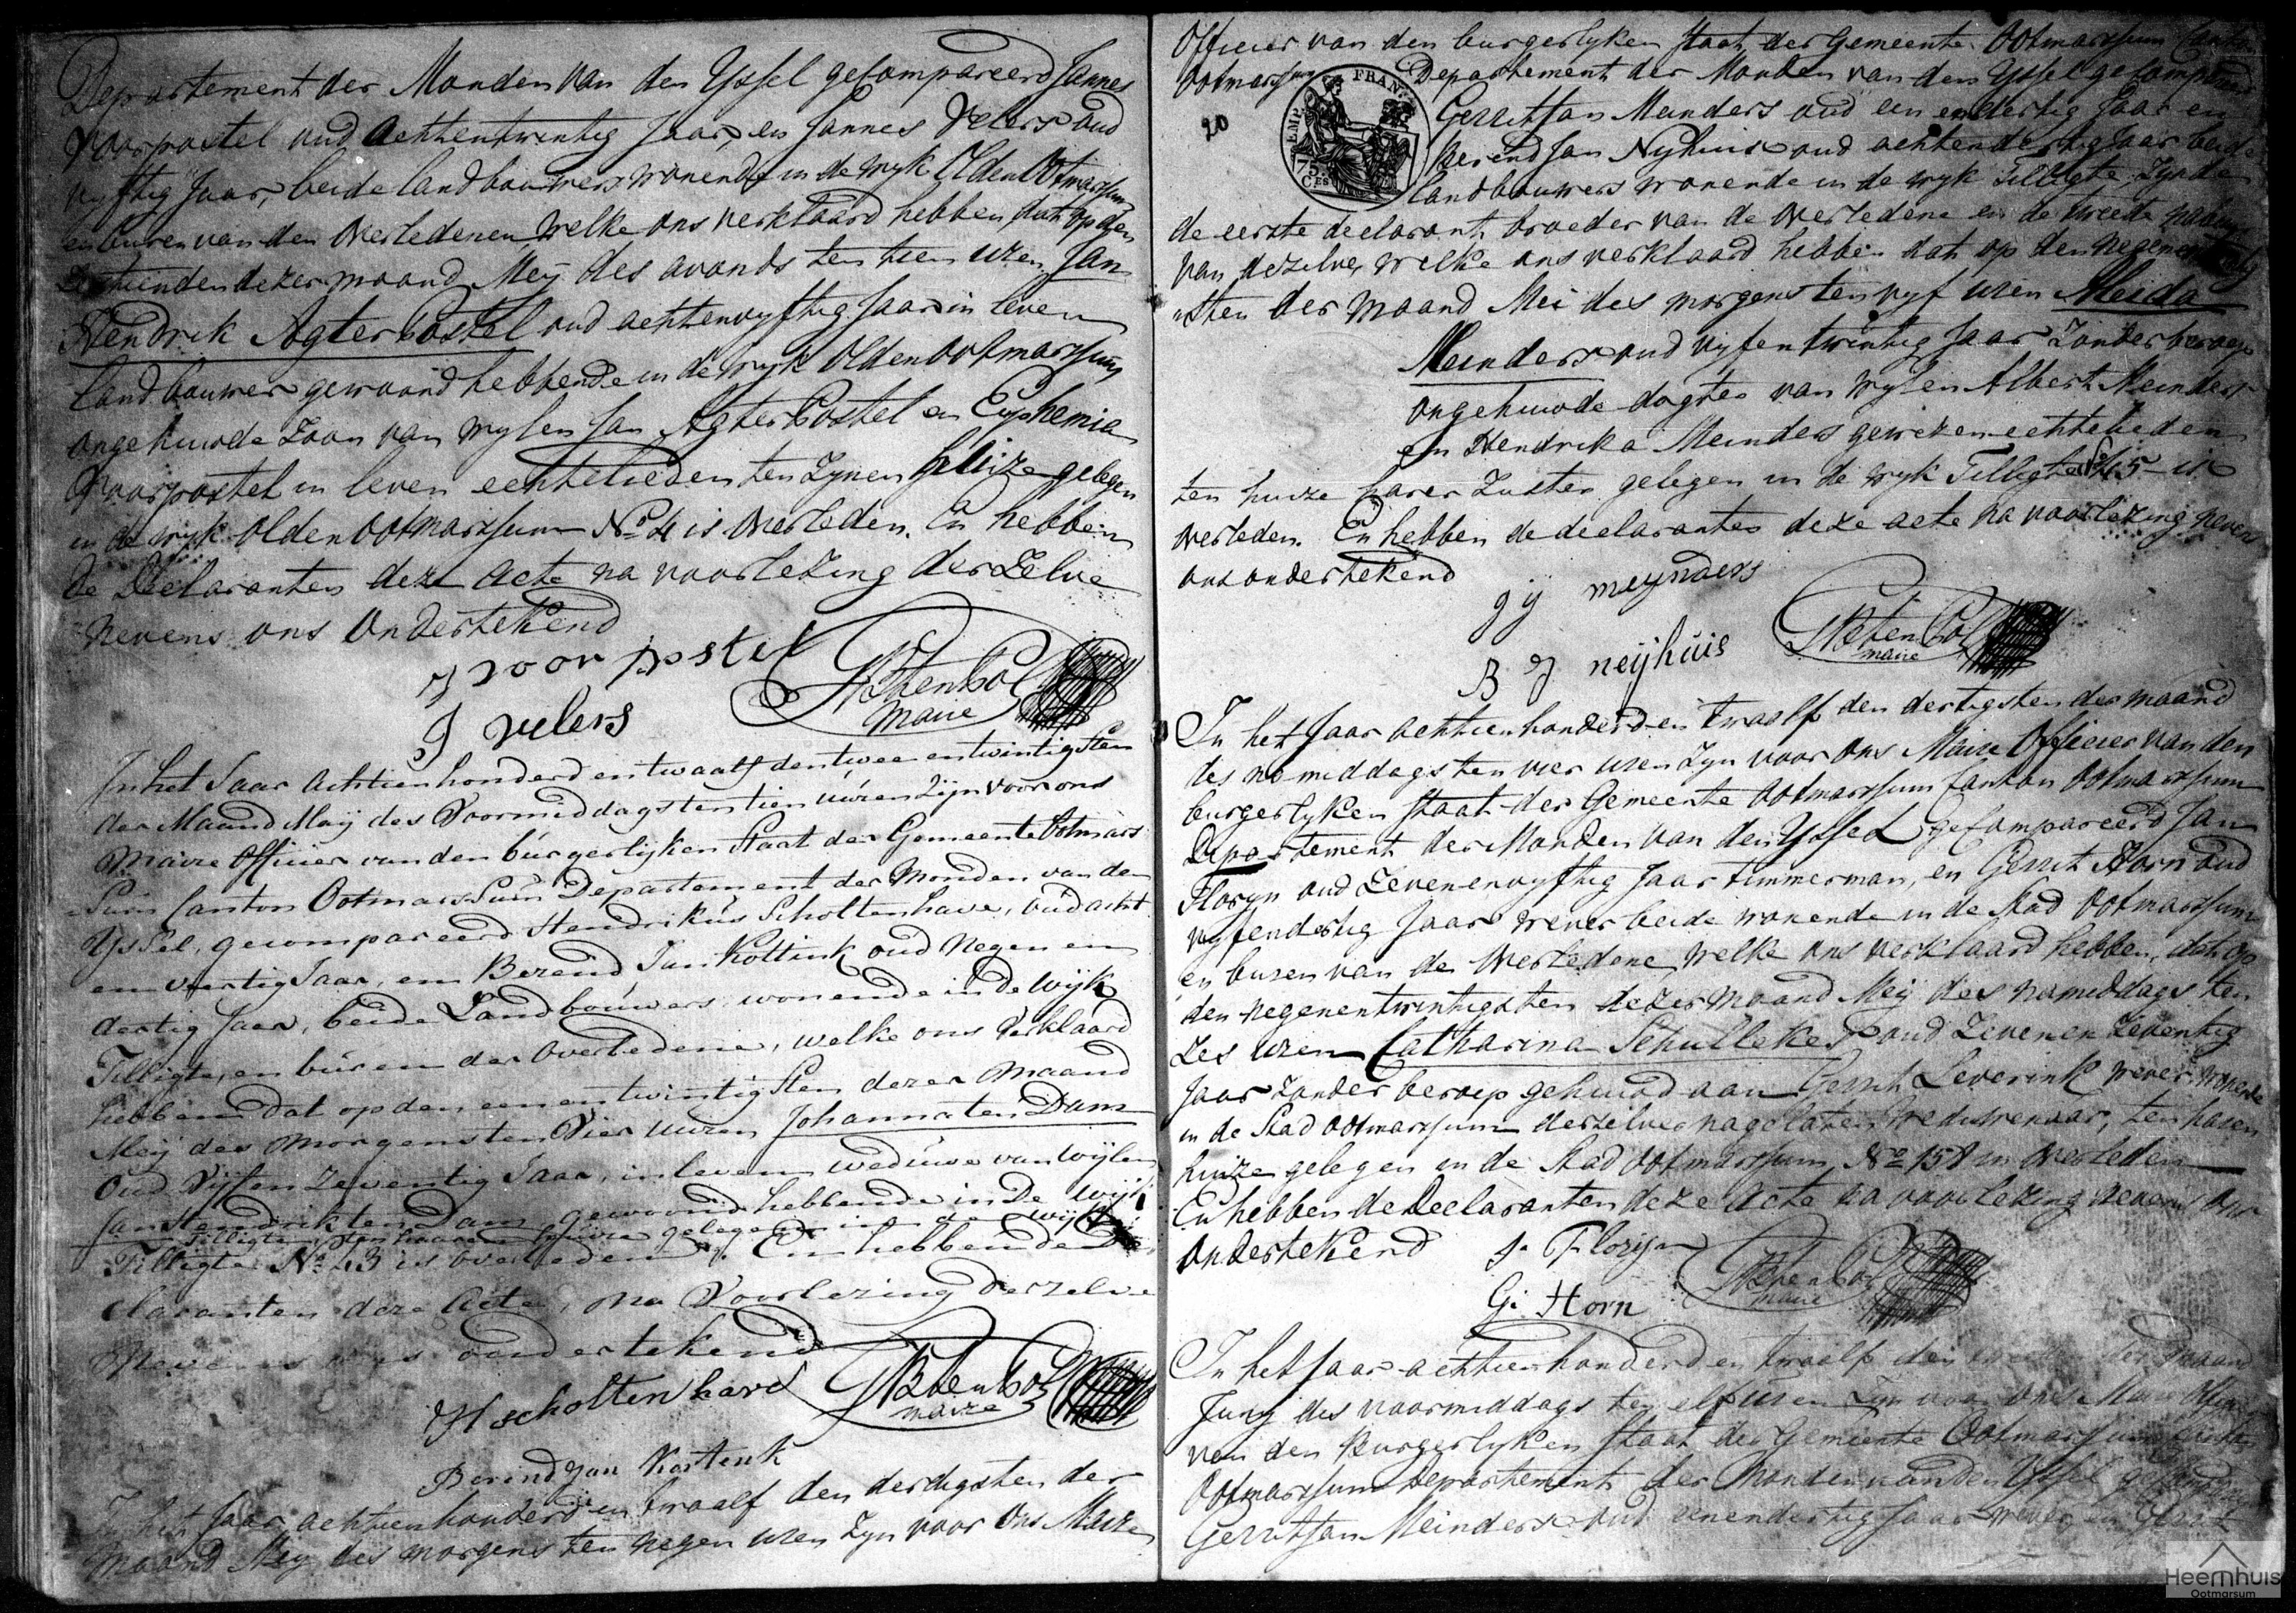 Departement der Monden van den Yssel gecompareerd Jannes
Voorpostel oud achtentwintig Jaar, en Jannes Velers oud
vyftig Jaar, beide landbouwers wonende in de wyk Olden Ootmarssum
en buren van den Overledenen, welke ons verklaard hebben, dat op den
dezer maand Mey des avonds ten tien uren Jan
Hendrik AgterPostel oud achtenvyftig Jaar in leven
landbouwer gewoond hebbende in de wyk Olden Ootmarssum,
ongehuwde Zoon van wylen Jan AgterPostel en Euphemia
Voorpostel in leven echtelieden ten Zynen huize gelegen
in de wyk Olden Ootmarssum No 4 is Overleden. En hebben
de Declaranten deze Acte na voorlezing derzelve
nevens ons Ondertekend
J voorpostel
J velers
maire
In het Jaar Achtienhonderd en twaalf den twee en twintigsten
der Maand Meij des Voormiddags ten tien uuren Zijn voor ons
Maire Officier van den burgerlijken Staat der Gemeente Ootmars
Sum Canton OotmarsSum Departement der Monden van den
Yssel, gecompareerd Hendrikus Scholtenhave, oud acht
en veertig Jaar, en Berend Jan Kottink oud Negen en
dertig Jaar, beide Landbouwers wonende in de Wijk
Tilligte, en buren der Overledene, welke ons Verklaard
hebben dat op den een en twintigsten dezer Maand
Meij des Morgens ten Vier uuren Johanna ten Dam
Oud Vijf en Zeventig Jaar, in leven weduwe van wijlen
Jan Hendrik ten Dam gewoond hebbende in De Wijk
Tilligte, ten haaren huize gelegen in de wijk
Tilligte No 43 is overleden. En hebben de De
claranten deze Acte, na Voorlezing derzelve
Nevens ons ondertekend
H scholtenhave
maire
Berend Jan Kottenk
In het Jaar achtienhonderd en twaalf den dertigsten der
Maand Mey des morgens ten negen uren Zyn voor Ons Maire
Officier van den burgerlyken Staat der Gemeente Ootmarssum Canton
Ootmarssum Departement der Monden van den Yssel gecompareerd
20
EMP. FRAN.
75 CES
Gerrit Jan Meinders oud een en dertig Jaar en
Berend Jan Nyhuis oud achtendertig Jaar beide
landbouwers wonende in de wyk Tilligte, Zynde
de eerste declarant broeder van de Overledene en de tweede
van dezelve, welke ons verklaard hebben dat op den
sten der maand Mei des morgens ten vyf uren Meida
Meinders oud vyfentwintig Jaar Zonder beroep
ongehuwde dogter van wylen Albert Meinders
en Hendrika Meinders gewezen echtelieden
ten huize harer Zuster gelegen in de wyk Tilligte No 15 is
Overleden. En hebben de declaranten deze acte na voorlezing nevens
ons ondertekend
g ij meynders
B J neijhuis
maire
In het Jaar achtienhonderd en twaalf den dertigsten der maand
des namiddags ten vier uren Zyn voor Ons Maire Officier van den
burgerlyken Staat der Gemeente Ootmarssum Canton Ootmarssum
Departement der Monden van den Yssel gecompareerd Jan
Floryn oud Zevenenvyftig Jaar timmerman, en Gerrit Horn oud
vyfendertig Jaar wever beide wonende in de Stad Ootmarssum
en buren van de Overledene, welke ons verklaard hebben, dat op
den negenentwintigsten dezer maand Mey des namiddags ten
zes uren Catharina Schulleker oud Zeven en Zeventig
Jaar Zonder beroep gehuwd aan Gerrit Leverink wever wonende
in de Stad Ootmarssum derzelver nagelaten Weduwenaar, ten haren
huize gelegen in de Stad Ootmarssum No 158 is Overleden
En hebben de Declaranten deze Acte na voorlezing nevens Ons
Ondertekend
J. Florijn
G. Horn
maire
In het Jaar achtienhonderd en twaalf den der Maand
Juny des voormiddags ten elf uren Zyn voor Ons Maire Officier
van den burgerlyken Staat der Gemeente Ootmarssum Canton
Ootmarssum Departement der Monden van den Yssel gecompareerd
Gerrit Jan Meinders oud eenendertig Jaar wever, en
Heemhuis
Ootmarsum